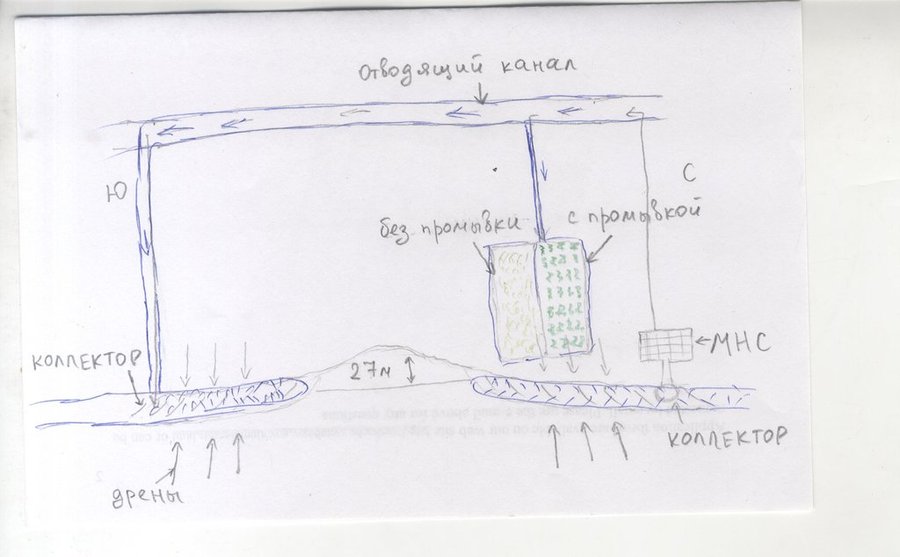 отводящий канал
Ю
С
без промывки
с промывкой
МНС
коллектор
27м
коллектор
дрены